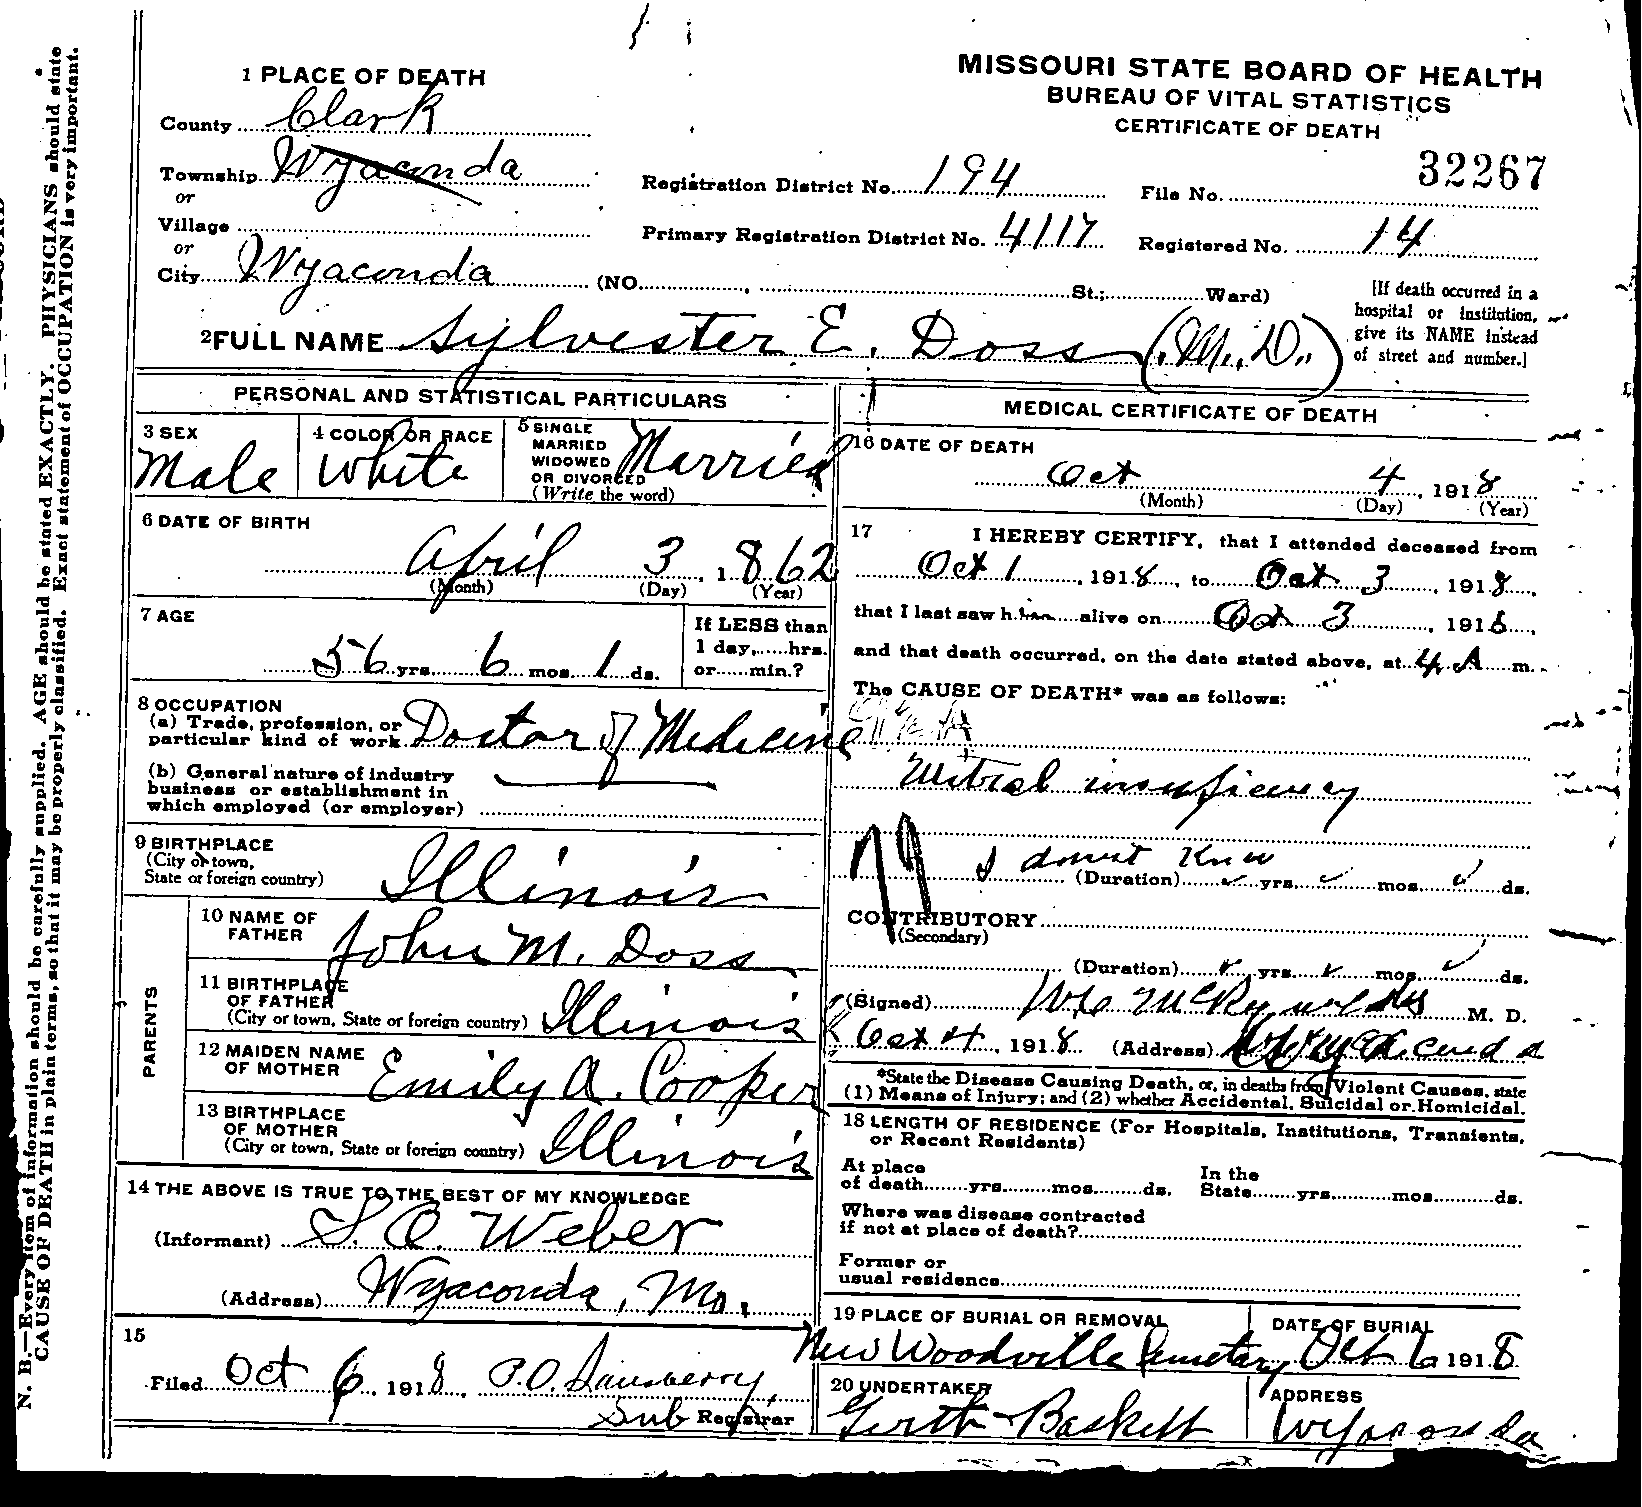 MISSOURI STATE BOARD OF HEALTH
BUREAU OF VITAL STATISTICS
CERTIFICATE OF DEATH
1 PLACE OF DEATH
County Clark
Township Wyaconda
or
Village
or
City Wyaconda (NO. St.; Ward)
Registration District No. 194 File No. 32267
Primary Registration District No. 4117 Registered No. 14
[If death occurred in a
hospital or institution,
give its NAME instead
of street and number.]
2 FULL NAME Sylvester E. Doss (M.D.)
PERSONAL AND STATISTICAL PARTICULARS
3 SEX
Male
4 COLOR OR RACE
White
5 SINGLE
MARRIED
WIDOWED
OR DIVORCED
(Write the word)
Married
6 DATE OF BIRTH
April 3, 1862
(Month) (Day) (Year)
7 AGE
56 yrs. 6 mos. 1 ds.
If LESS than
1 day, hrs.
or min.?
8 OCCUPATION
(a) Trade, profession, or
particular kind of work Doctor of Medicine
(b) General nature of industry
business or establishment in
which employed (or employer)
9 BIRTHPLACE
(City or town,
State or foreign country) Illinois
PARENTS
10 NAME OF
FATHER John M. Doss
11 BIRTHPLACE
OF FATHER
(City or town, State or foreign country) Illinois
12 MAIDEN NAME
OF MOTHER Emily A. Cooper
13 BIRTHPLACE
OF MOTHER
(City or town, State or foreign country) Illinois
14 THE ABOVE IS TRUE TO THE BEST OF MY KNOWLEDGE
(Informant) S. O. Weber
(Address) Wyaconda, Mo.
15
Filed Oct 6, 1918, P.O. Sansberry,
Sub Registrar
MEDICAL CERTIFICATE OF DEATH
16 DATE OF DEATH
Oct 4, 1918
(Month) (Day) (Year)
17 I HEREBY CERTIFY, that I attended deceased from
Oct 1, 1918, to Oct 3, 1918,
that I last saw him alive on Oct 3, 1918,
and that death occurred, on the date stated above, at 4 A m.
The CAUSE OF DEATH* was as follows:
Mitral insuficency
79 I dont Know
(Duration) yrs. mos. ds.
CONTRIBUTORY
(Secondary)
(Duration) yrs. mos. ds.
(Signed) McReynolds M. D.
Oct 4, 1918 (Address) Wyaconda
*State the Disease Causing Death, or, in deaths from Violent Causes, state
(1) Means of Injury; and (2) whether Accidental, Suicidal or Homicidal.
18 LENGTH OF RESIDENCE (For Hospitals, Institutions, Transients,
or Recent Residents)
At place
of death yrs. mos. ds.
In the
State yrs. mos. ds.
Where was disease contracted
if not at place of death?
Former or
usual residence
19 PLACE OF BURIAL OR REMOVAL
New Woodville Cemetary
DATE OF BURIAL
Oct 6 1918
20 UNDERTAKER
Gerth & Baskett
ADDRESS
Wyaconda
N. B.—Every item of information should be carefully supplied. AGE should be stated EXACTLY. PHYSICIANS should state
CAUSE OF DEATH in plain terms, so that it may be properly classified. Exact statement of OCCUPATION is very important.